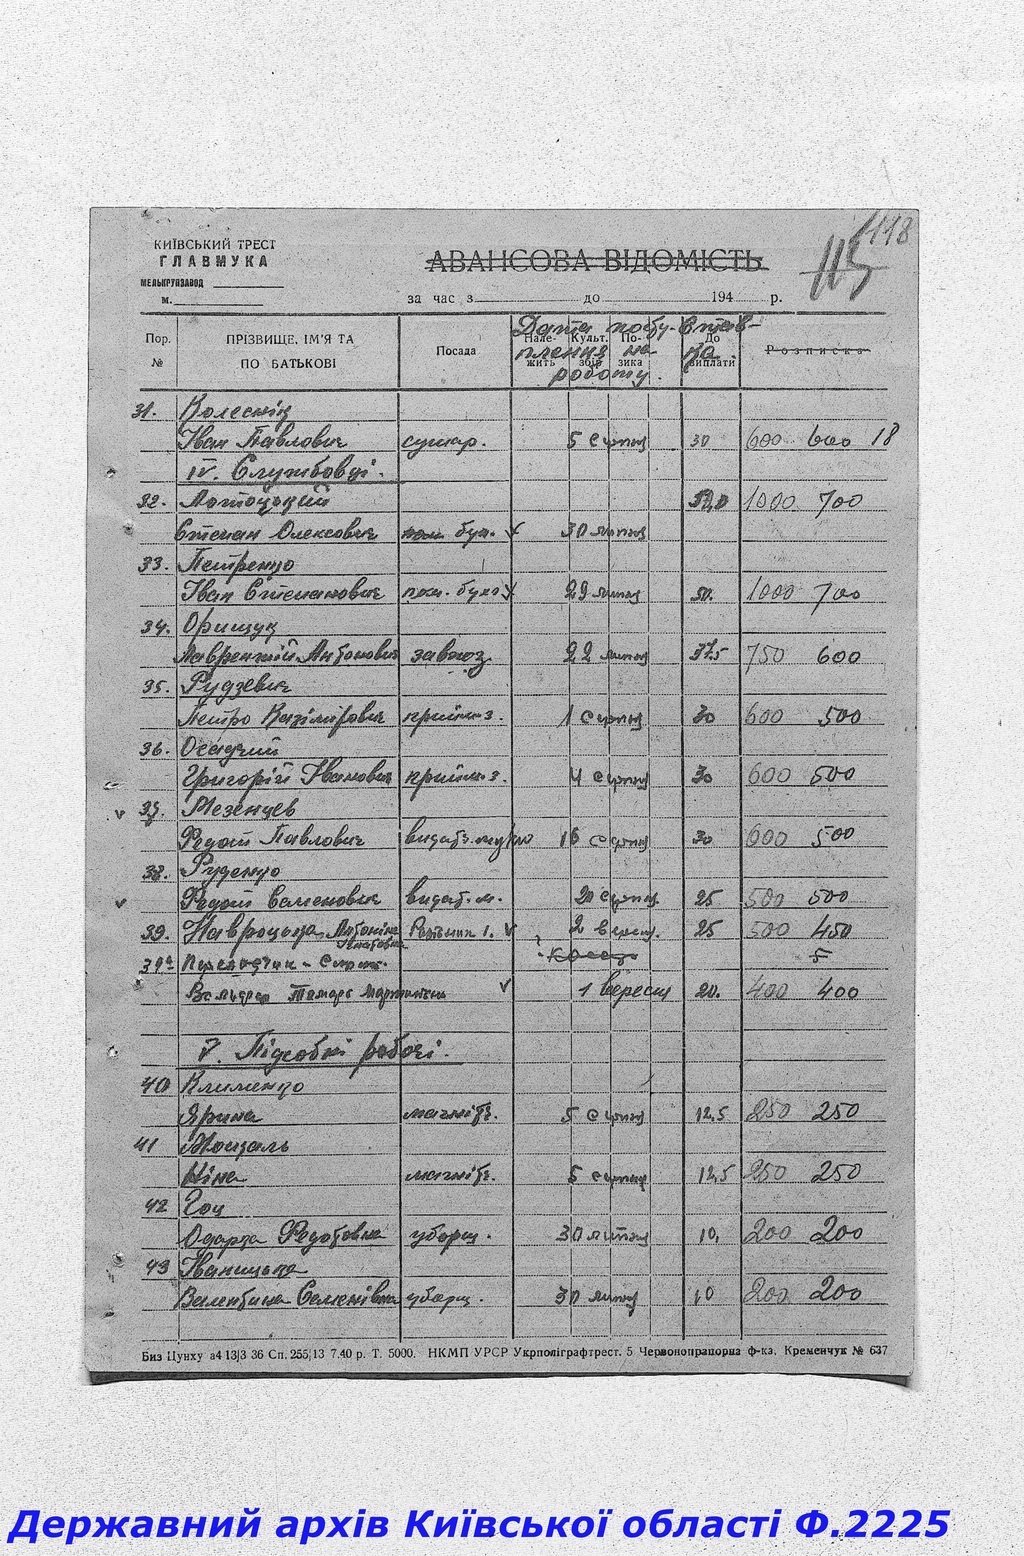 118
115
КИЇВСЬКИЙ ТРЕСТ
ГЛАВМУКА
МЕЛЬКРУПЗАВОД
м.
АВАНСОВА ВІДОМІСТЬ
за час з до 194 р.
Пор. №
ПРІЗВИЩЕ, ІМ'Я ТА ПО БАТЬКОВІ
Посада
Нале-жить
Культ. збір
По-зика
До виплати
Розписка
Дата прибу-
плення на
роботу.
Став-
ка.
31. Колеснік
Іван Павлович сушар. 5 серпня 30 600 600 18
IV. Службовці.
32. Лотоцький 1000 700
Степан Олексович пом. бух. v 30 липня
33. Петренко
Іван Степанович пом. бухг. v 29 липня 50. 1000 700
34. Орищук
Лаврентій Антонович завгоз. 22 липня 37,5 750 600
35. Рудзевич
Петро Казімірович прийм. з. 1 серпня 30 600 500
36. Осадчий
Григорій Іванович прийм. з. 4 серпня 30 600 500
v 37. Мезенцев
Федот Павлович 16 серпня 30 600 500
38. Руденко
v Федот Семенович видав. м. 20 серпня 25 500 500
39. Навроцька Антоніна 1. v 2 верес. 25 500 450
39а
Тамара v 1 вересня 20. 400 400
V. Підсобні робочі.
40 Клименко
Ярина 5 серпня 12,5 250 250
41
Ніна 5 серпня 12,5 250 250
42 Гоц
Одарка Федотовна уборщ. 30 липня 10, 200 200
43 Іваницька
Валентина Семенівна уборщ. 30 липня 10 200 200
Биз Цунху а4 13|3 36 Сп. 255|13 7.40 р. Т. 5000. НКМП УРСР Укрполіграфтрест. 5 Червонопрапорна ф-ка. Кременчук № 637
Державний архів Київської області Ф.2225